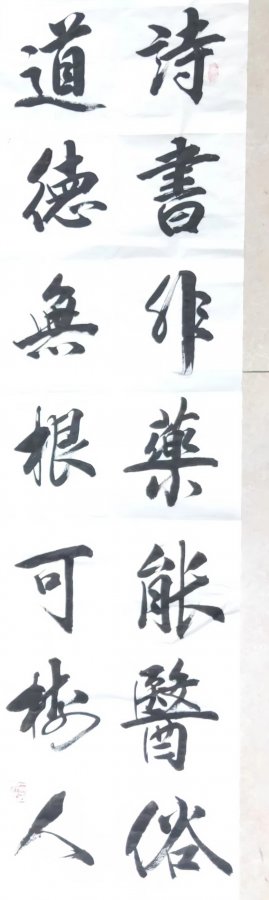 詩書非藥能醫俗
道德無根可樹人